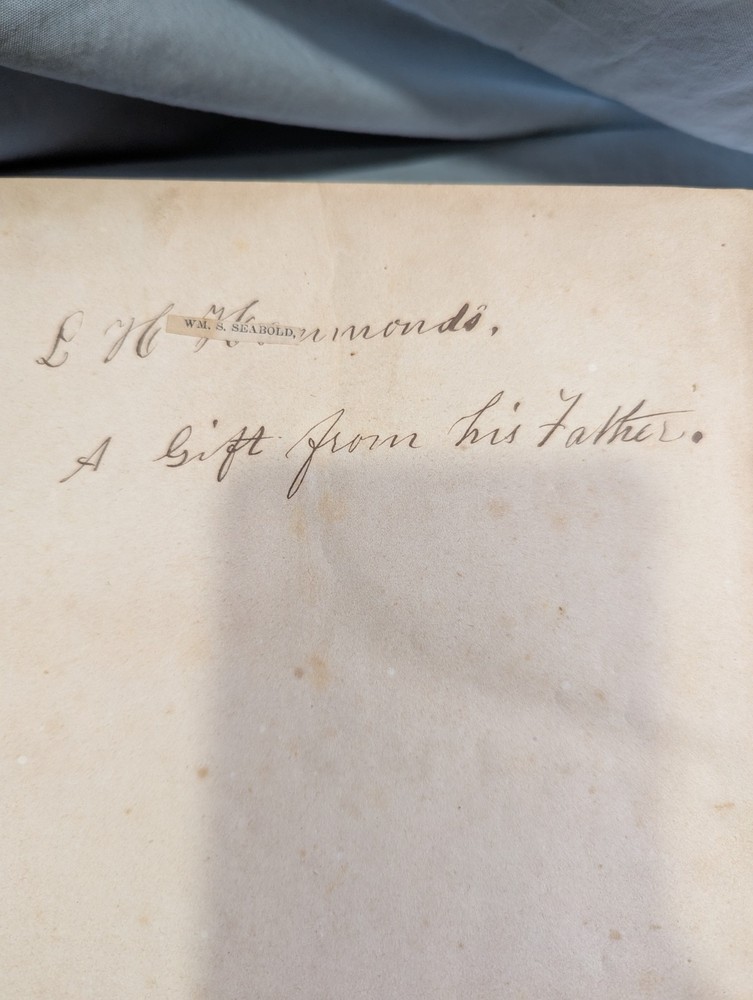 L H Hammonds.
WM. S. SEABOLD,
A Gift from his Father.